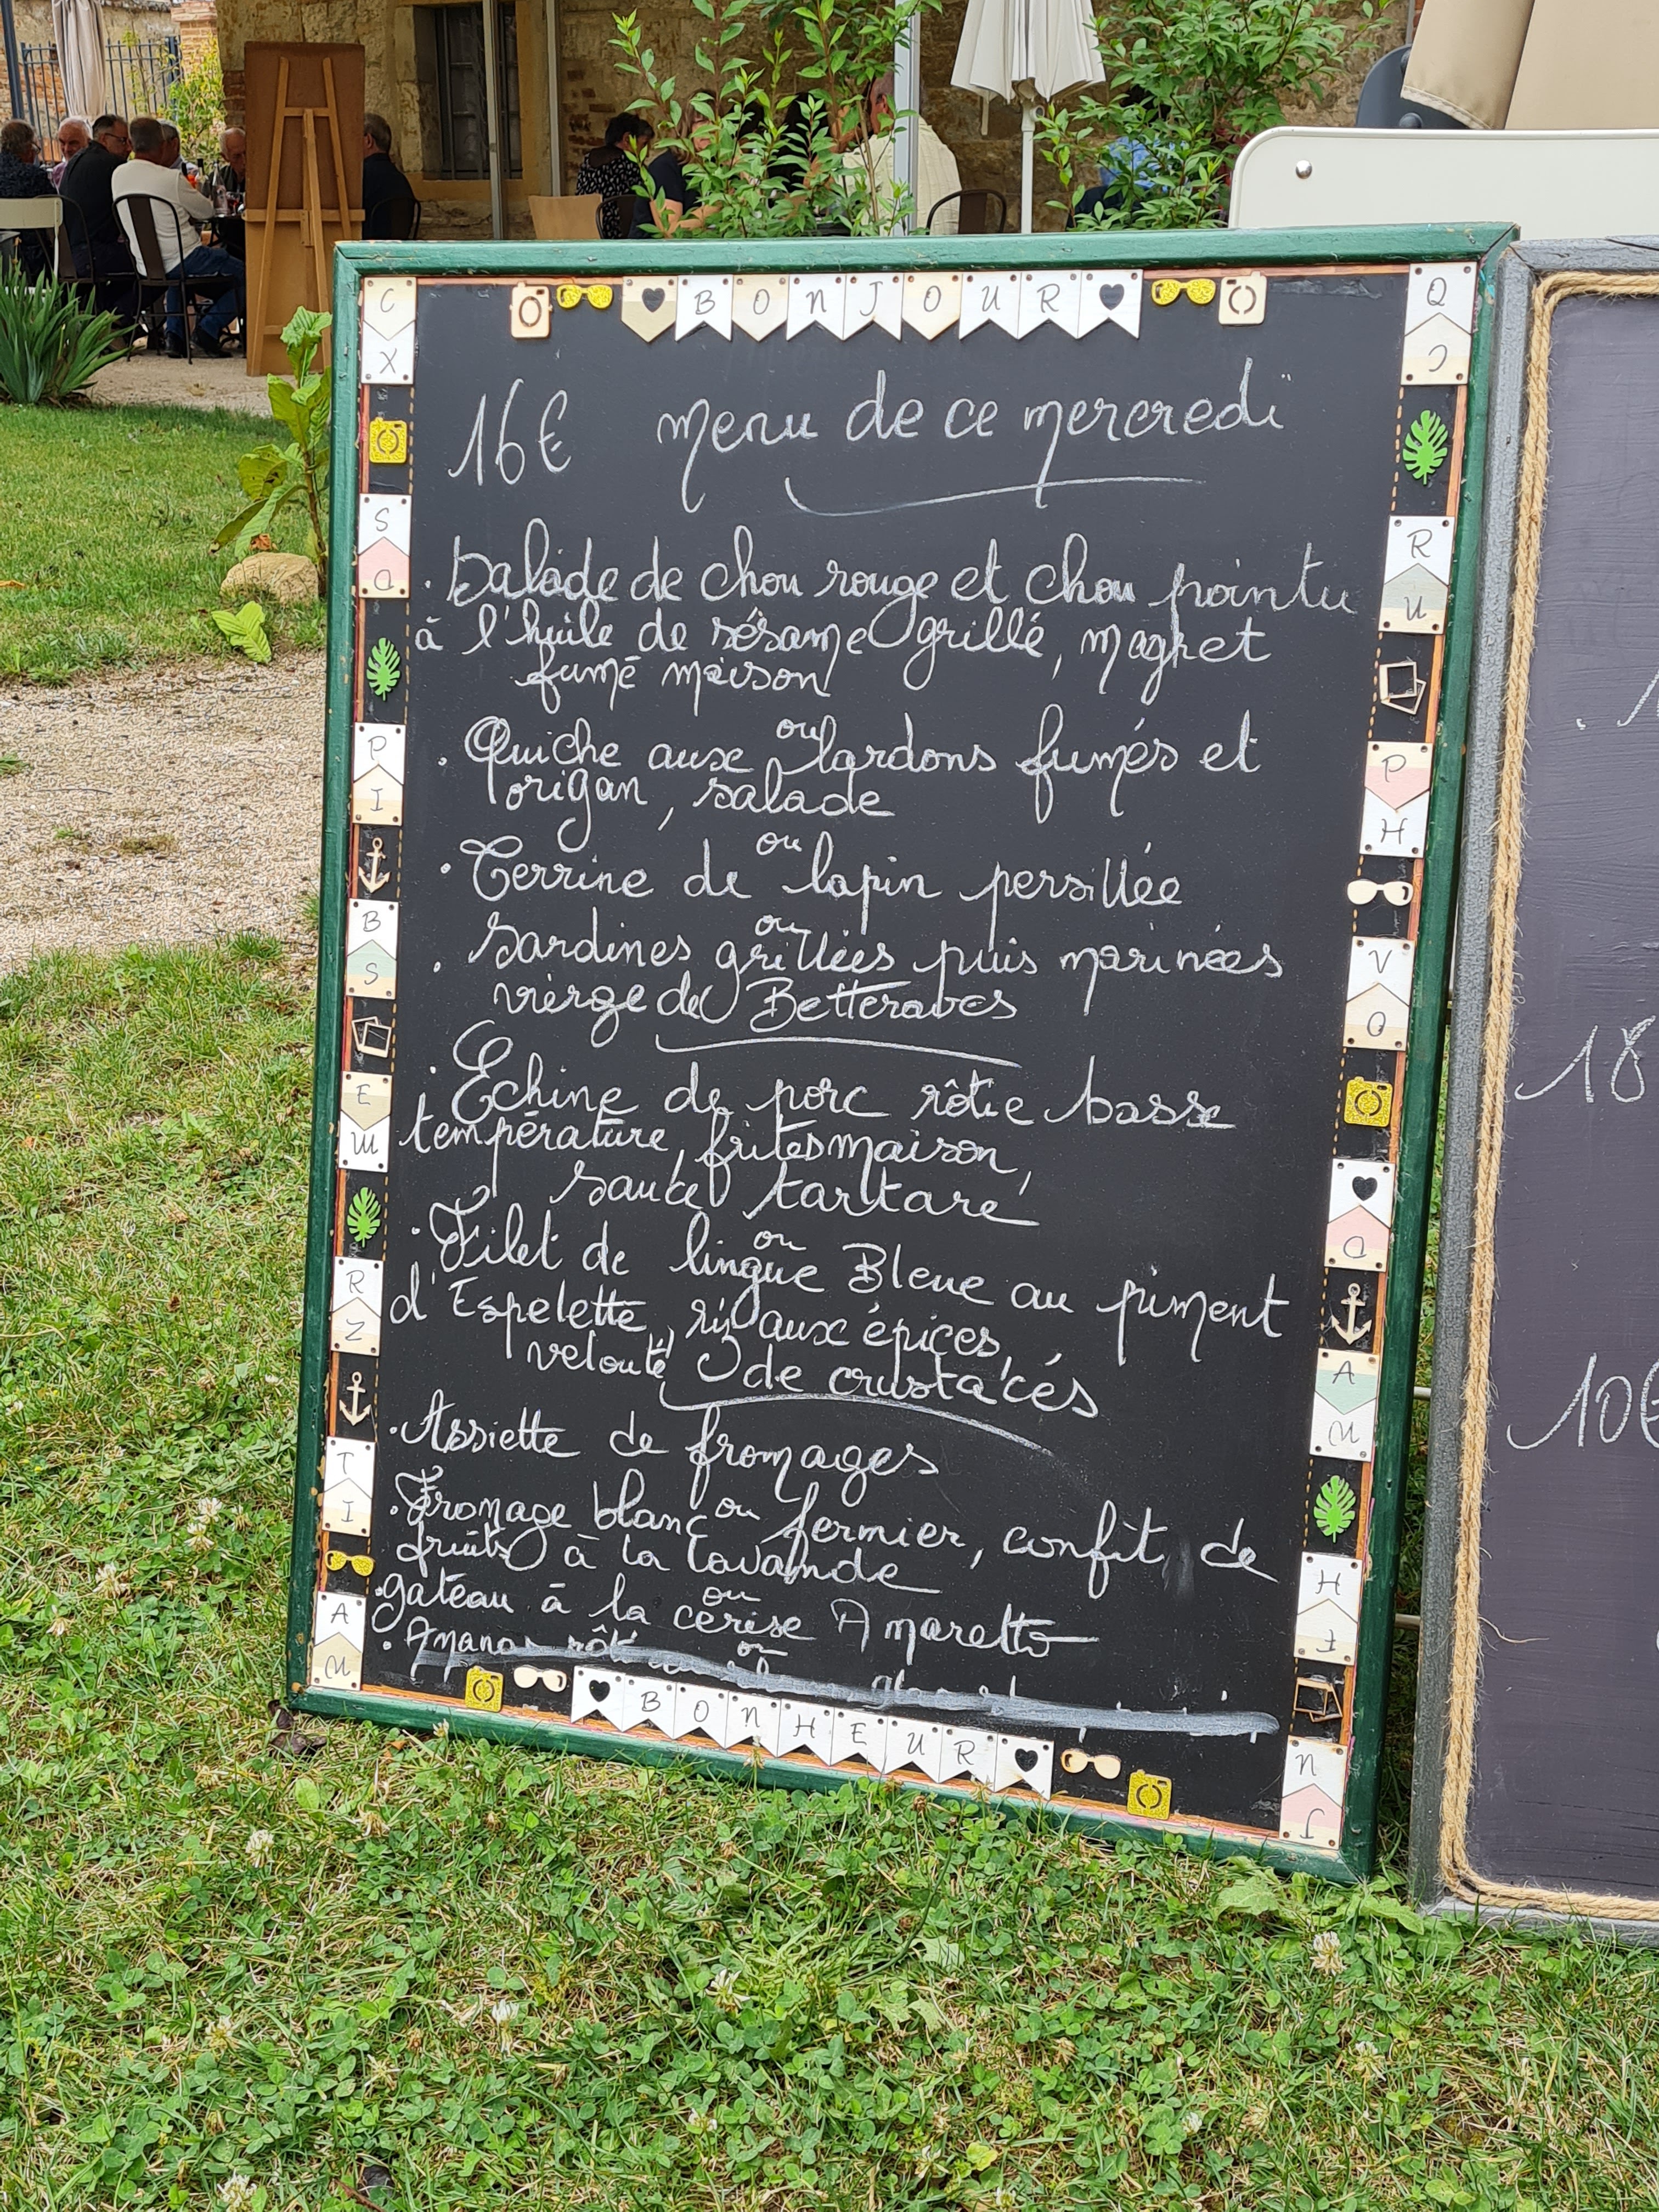 BONJOUR
16€ menu de ce mercredi
. Salade de chou rouge et chou pointu
à l'huile de sésame grillé, magret
fumé maison
ou
. Quiche aux lardons fumés et
origan, salade
ou
. Terrine de lapin persillée
ou
. Sardines grillées puis marinées
vierge de Betteraves
. Echine de porc rôtie basse
température, frites maison,
sauce tartare
. Filet de lingue Bleue au piment
ou
d'Espelette, riz aux épices,
velouté de crustacés
. Assiette de fromages
ou
. Fromage blanc fermier, confit de
fruits à la lavande
ou
. gateau à la cerise Amaretto
ou
. Ananas
BONHEUR
C
X
S
D
P
I
B
S
E
M
R
Z
T
I
A
M
Q
C
R
U
P
H
V
O
D
A
M
H
F
N
J
18
10€